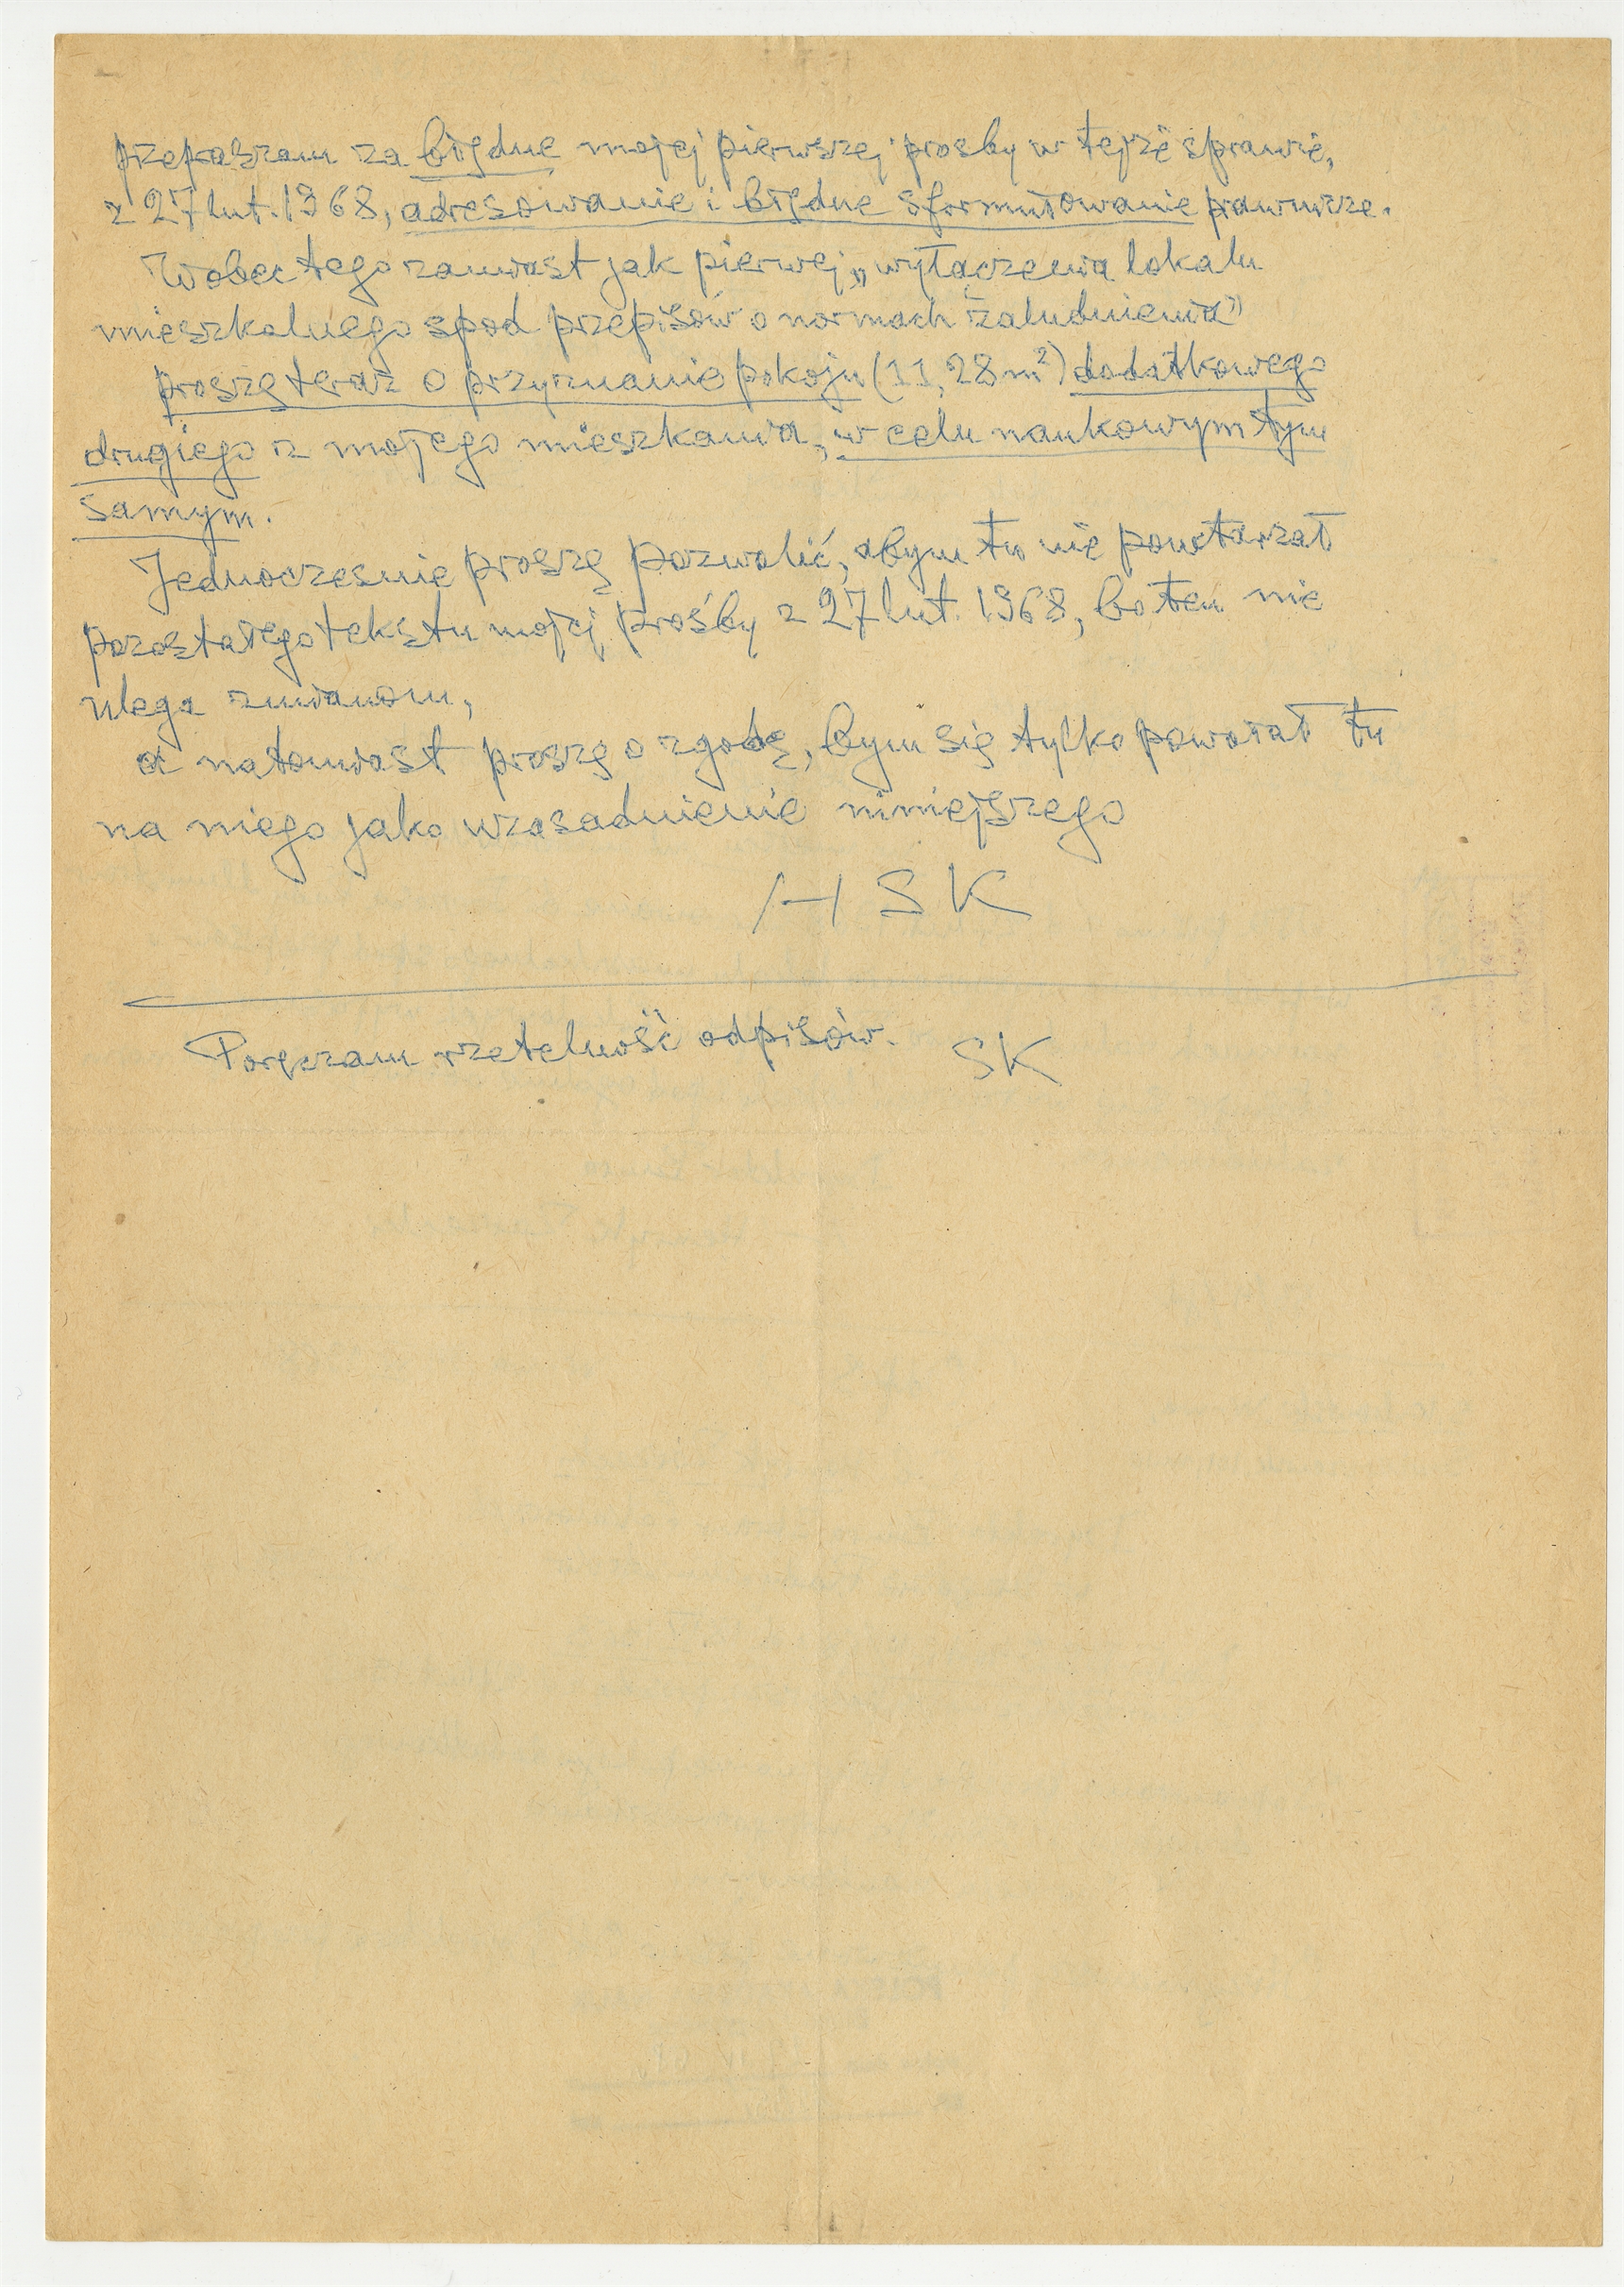 przepraszam za błędne mojej pierwszej prośby w tejże sprawie,
z 27 lut. 1968, adresowanie i błędne sformułowanie prawnicze.
Wobec tego zamiast jak pierwej „wyłączenia lokalu
mieszkalnego spod przepisów o normach zaludnienia”
proszę teraz o przyznanie pokoju (11,28 m²) dodatkowego
drugiego z mojego mieszkania, w celu naukowym tym
samym.
Jednocześnie proszę pozwolić, abym tu nie powtarzał
pozostałego tekstu mojej prośby z 27 lut. 1968, bo ten nie
ulega zmianom,
a natomiast proszę o zgodę, bym się tylko powołał tu
na niego jako uzasadnienie niniejszego
HSK
Poręczam rzetelność odpisów. SK